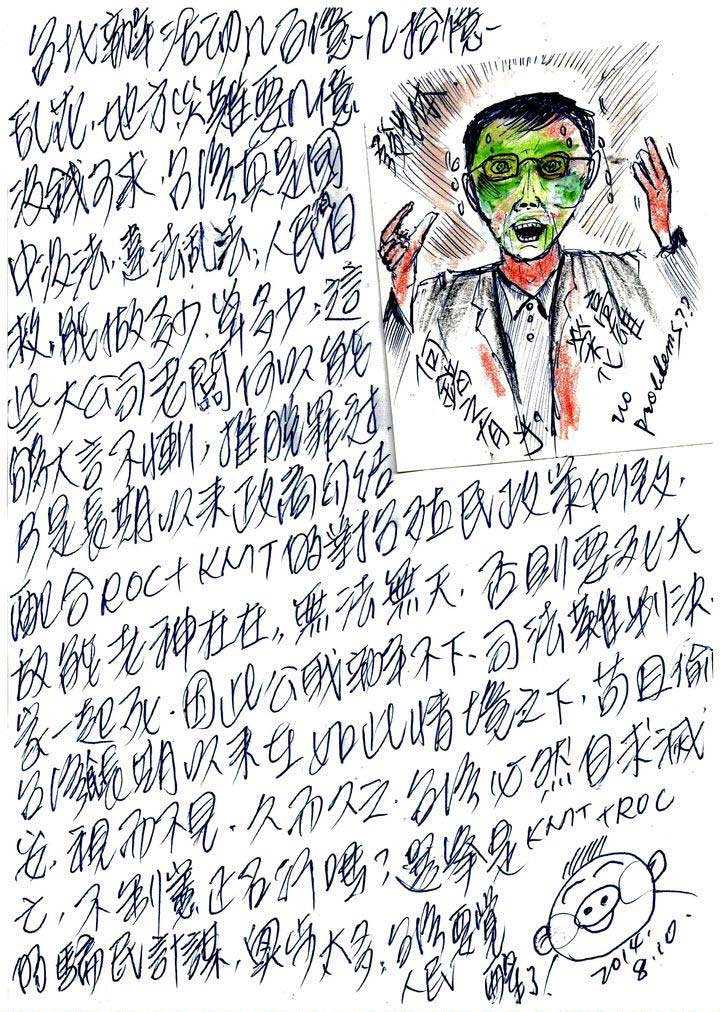 活動几百億几拾億
乱花.地方災難要几億
沒錢可求.台灣真是國
中沒法.違法乱法,人民自
救,能做多少.算多少;這
些大公司老闆何以能
夠大言不慚,推脫罪过.
乃是長期以來政商勾结
配合ROC+KMT的殖民政策所致.
故能老神在在,,無法無天.否則要死大
家一起死.因此公職不下.司法難判決.
台灣長期以來在如此情境之下,苟且偷
生,視而不見.久而久之.台灣必然自求滅
亡,不制憲正名行嗎?選举是KMT+ROC
的騙民計謀,退步太多,台灣要覺
人民 醒了!
2014.
8.10.
no
problems??